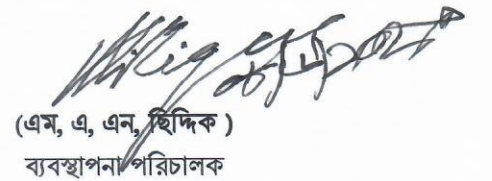 (এম, এ, এন, ছিদ্দিক )
ব্যবস্থাপনা পরিচালক